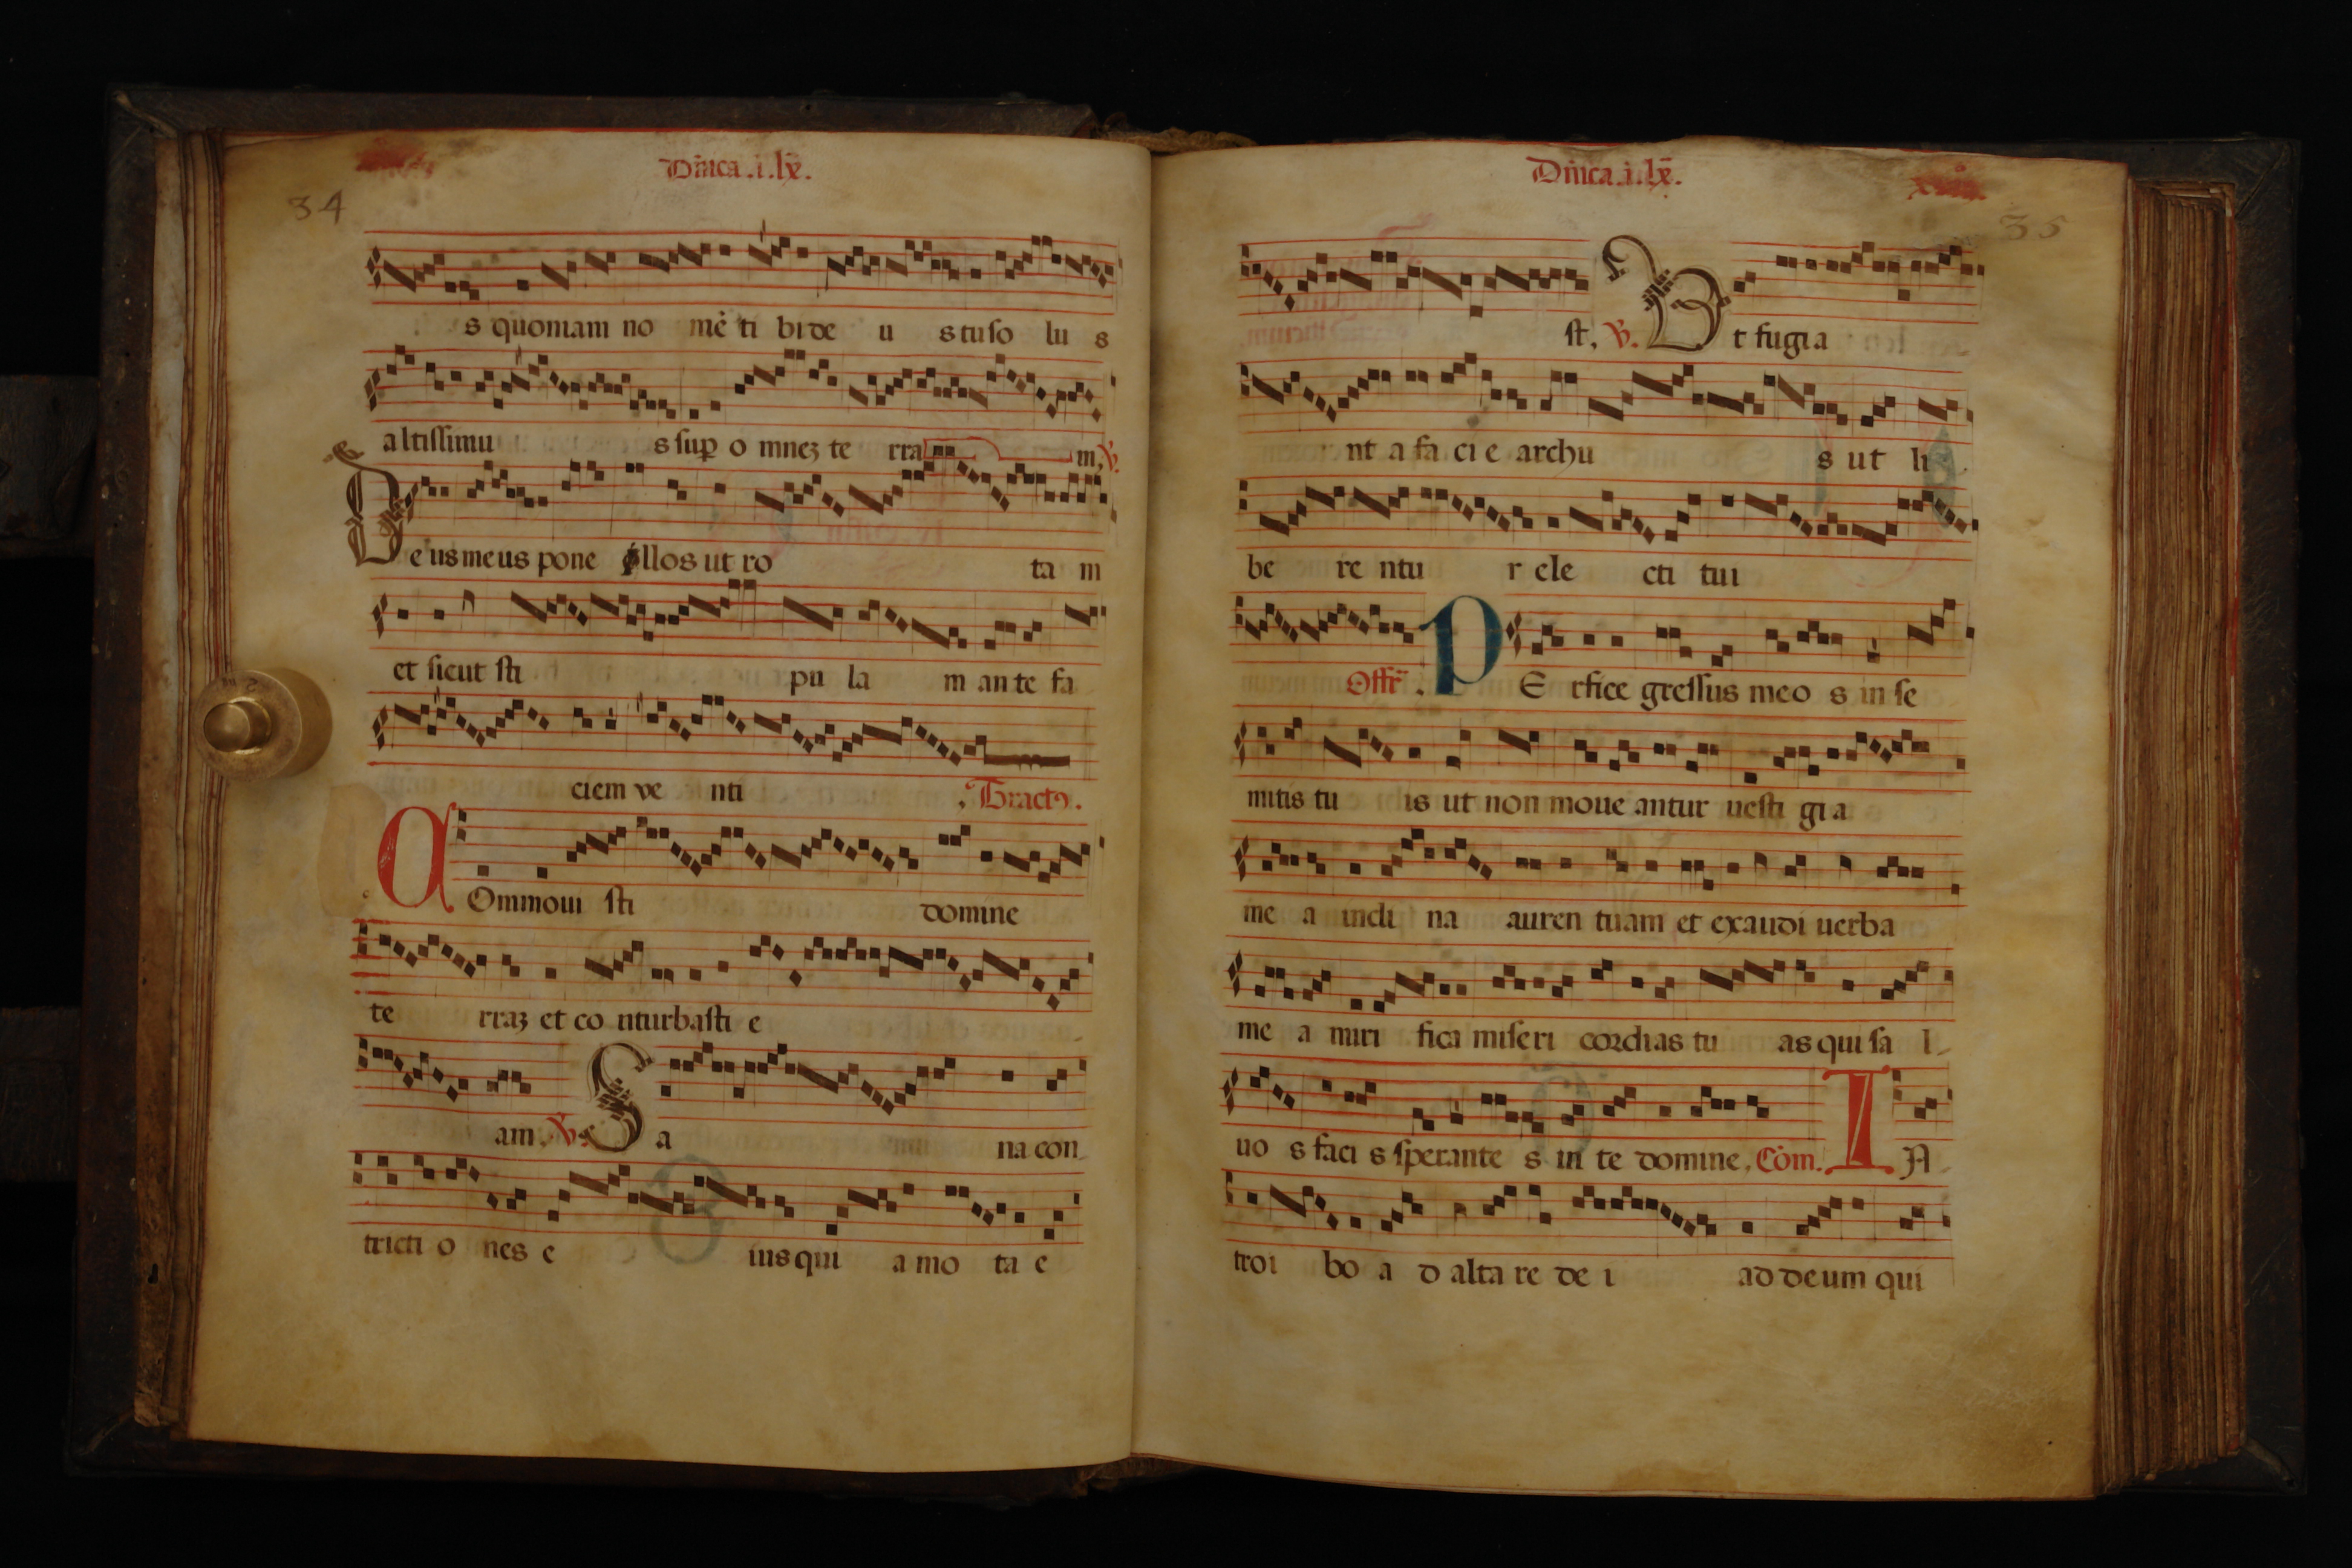 Dñica.i.lx̄.
34
s quoniam no mē ti bi de u s tu so lu s
altissimu s sup o mnez te rra m, V.
D e us meus pone illos ut ro ta m
et sicut sti pu la m an te fa
ciem ve nti , Tractꝰ.
C Ommoui sti domine
te rraz et co nturbasti e
am. V. S a na con
tricti o nes e ius qui a mo ta e
Dñica.i.lx̄.
35
st, V. U t fugia
nt a fa ci e archu s ut li
be re ntu r ele cti tui
Offr̄. P E rfice gressus meo s in se
mitis tu is ut non moue antur uesti gi a
me a incli na auren tuam et exaudi uerba
me a miri fica miseri cordias tu as qui sa l
uo s faci s sperante s in te domine, Com̄. I N
troi bo a d alta re de i ad deum qui